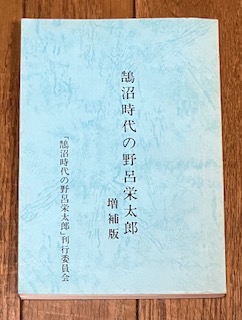 鵠沼時代の野呂栄太郎
増補版
「鵠沼時代の野呂栄太郎」刊行委員会